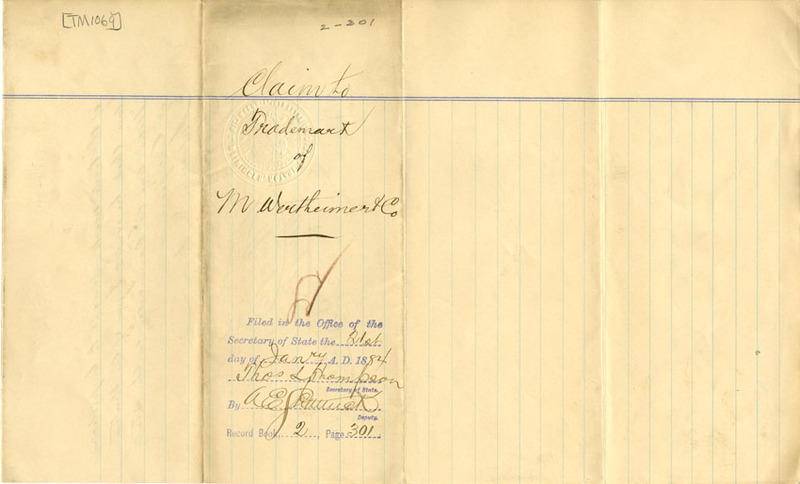 [TM1069]
2-301
Claim to
Trademark
of
M Wertheimer & Co
Filed in the Office of the
Secretary of State the 21st
day of Janry A. D. 1884
Thos L Thompson
Secretary of State.
By A E
Deputy.
Record Book, 2, Page 301